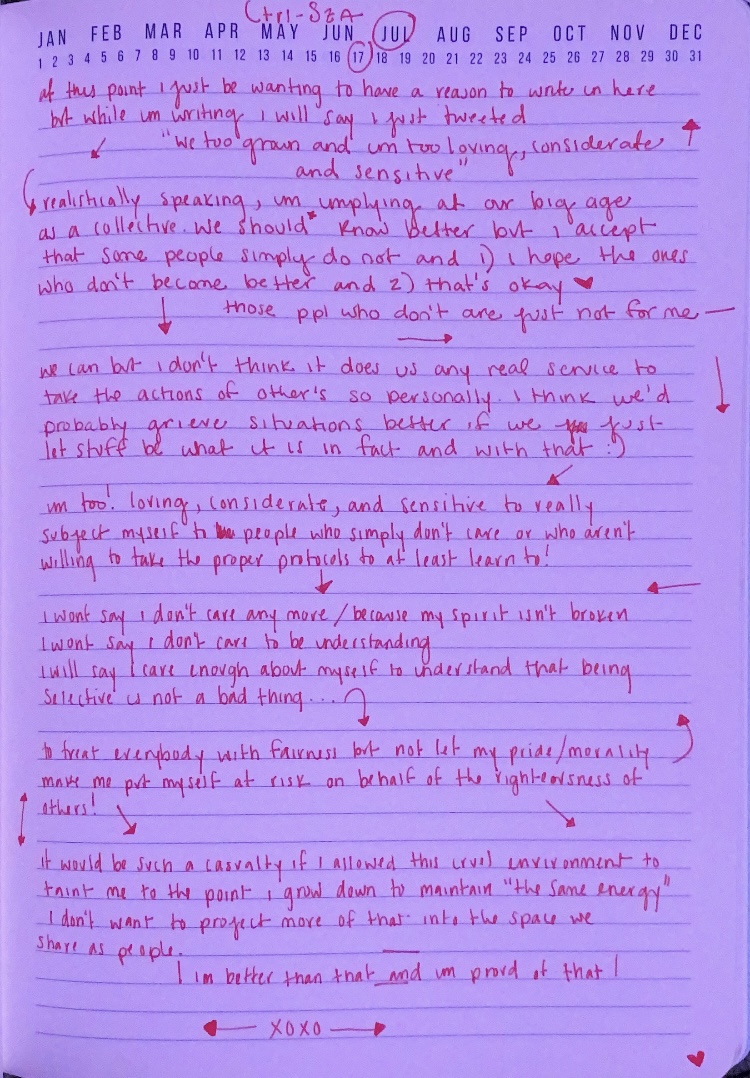 Ctrl-SZA
JAN FEB MAR APR MAY JUN JUL AUG SEP OCT NOV DEC
1 2 3 4 5 6 7 8 9 10 11 12 13 14 15 16 17 18 19 20 21 22 23 24 25 26 27 28 29 30 31
at this point i just be wanting to have a reason to write in here
but while im writing i will say i just tweeted
"we too grown and im too loving, considerate
and sensitive"
realistically speaking, im implying at our big age
as a collective. we should* know better but i accept
that some people simply do not and 1) i hope the ones
who don't become better and 2) that's okay ♥
those ppl who don't are just not for me —
we can but i don't think it does us any real service to
take the actions of other's so personally. I think we'd
probably grieve situations better if we just
let stuff be what it is in fact and with that :)
im too! loving, considerate, and sensitive to really
subject myself to people who simply don't care or who aren't
willing to take the proper protocols to at least learn to!
I wont say i don't care any more / because my spirit isn't broken
I wont say I don't care to be understanding
I will say I care enough about myself to understand that being
selective is not a bad thing...
to treat everybody with fairness but not let my pride/morality
make me put myself at risk on behalf of the righteousness of
others!
it would be such a casualty if I allowed this cruel environment to
taint me to the point i grow down to maintain "the same energy"
I don't want to project more of that into the space we
share as people.
| im better than that and im proud of that |
XOXO